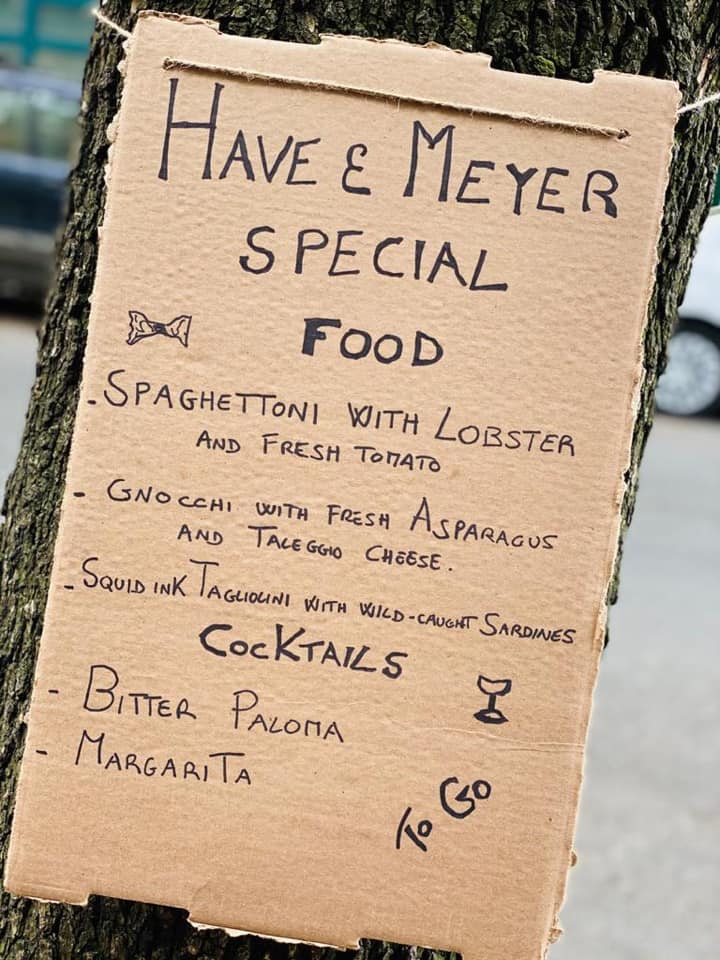 HAVE & MEYER
SPECIAL
FOOD
- SPAGHETTONI WITH LOBSTER
AND FRESH TOMATO
- GNOCCHI WITH FRESH ASPARAGUS
AND TALEGGIO CHEESE.
- SQUID INK TAGLIOLINI WITH WILD-CAUGHT SARDINES
COCKTAILS
- BITTER PALOMA
- MARGARITA
TO GO